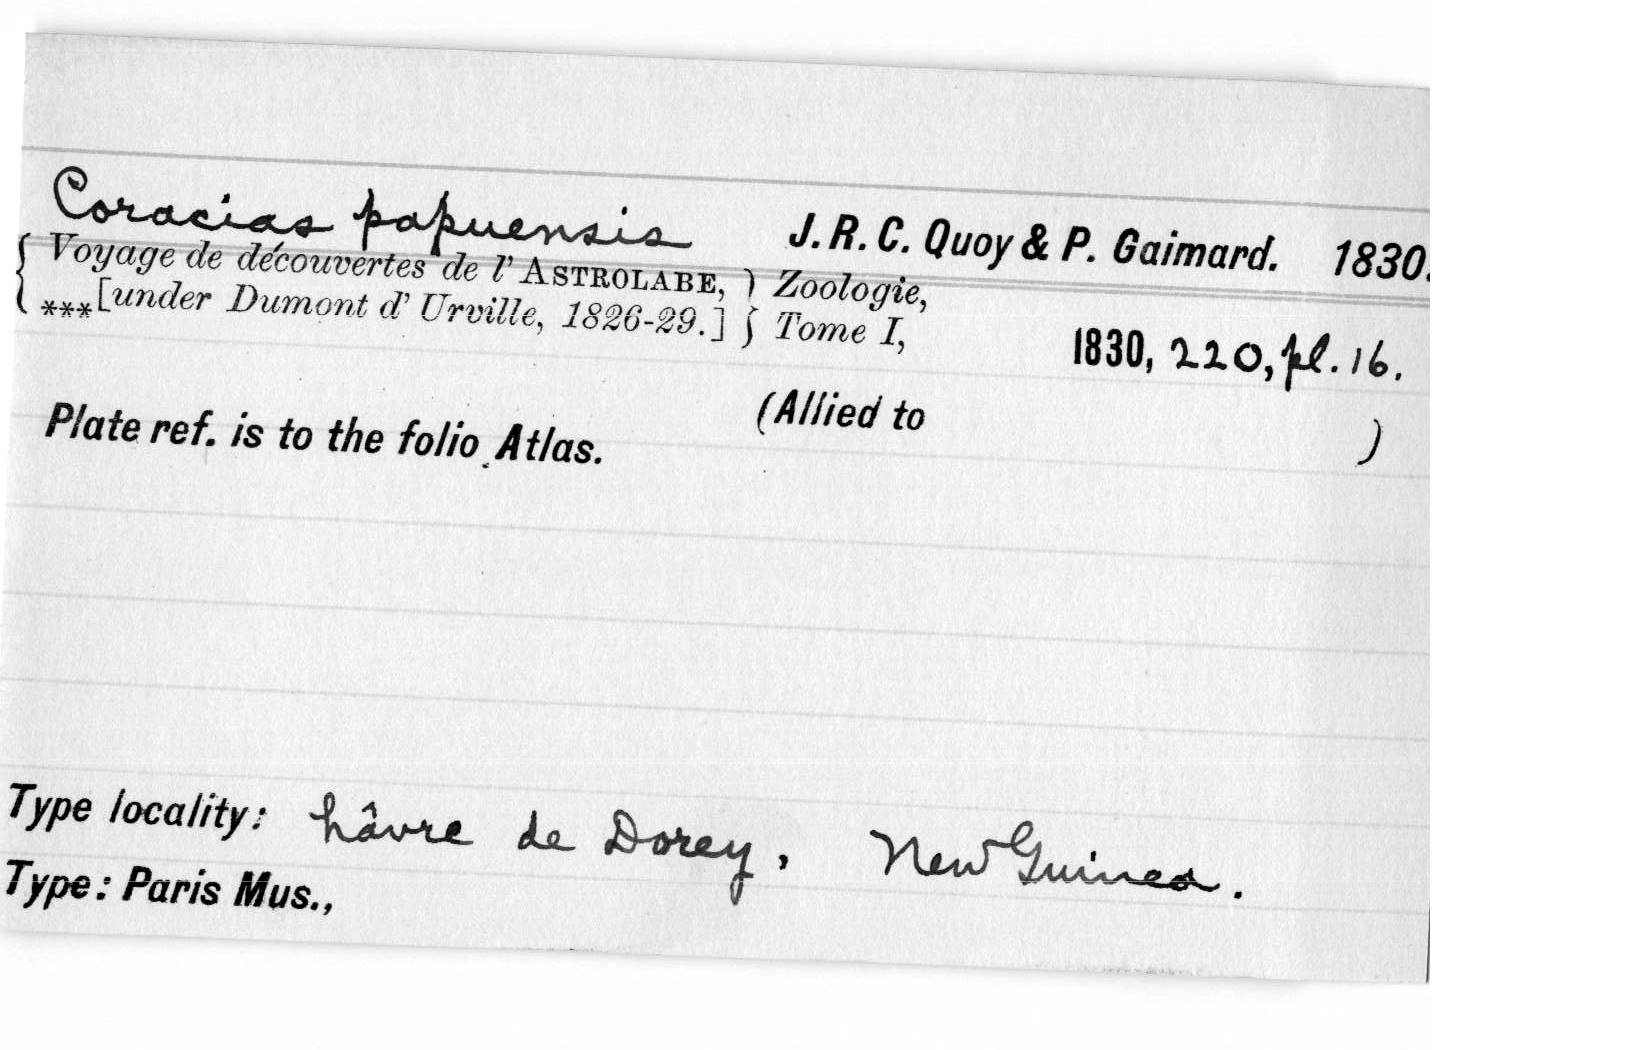 Coracias papuensis J. R. C. Quoy & P. Gaimard. 1830.
{ Voyage de découvertes de l' ASTROLABE, } Zoologie,
{ ***[under Dumont d' Urville, 1826-29.] } Tome I, 1830, 220, pl. 16.
Plate ref. is to the folio Atlas. (Allied to )
Type locality: hâvre de Dorey, New Guinea.
Type: Paris Mus.,